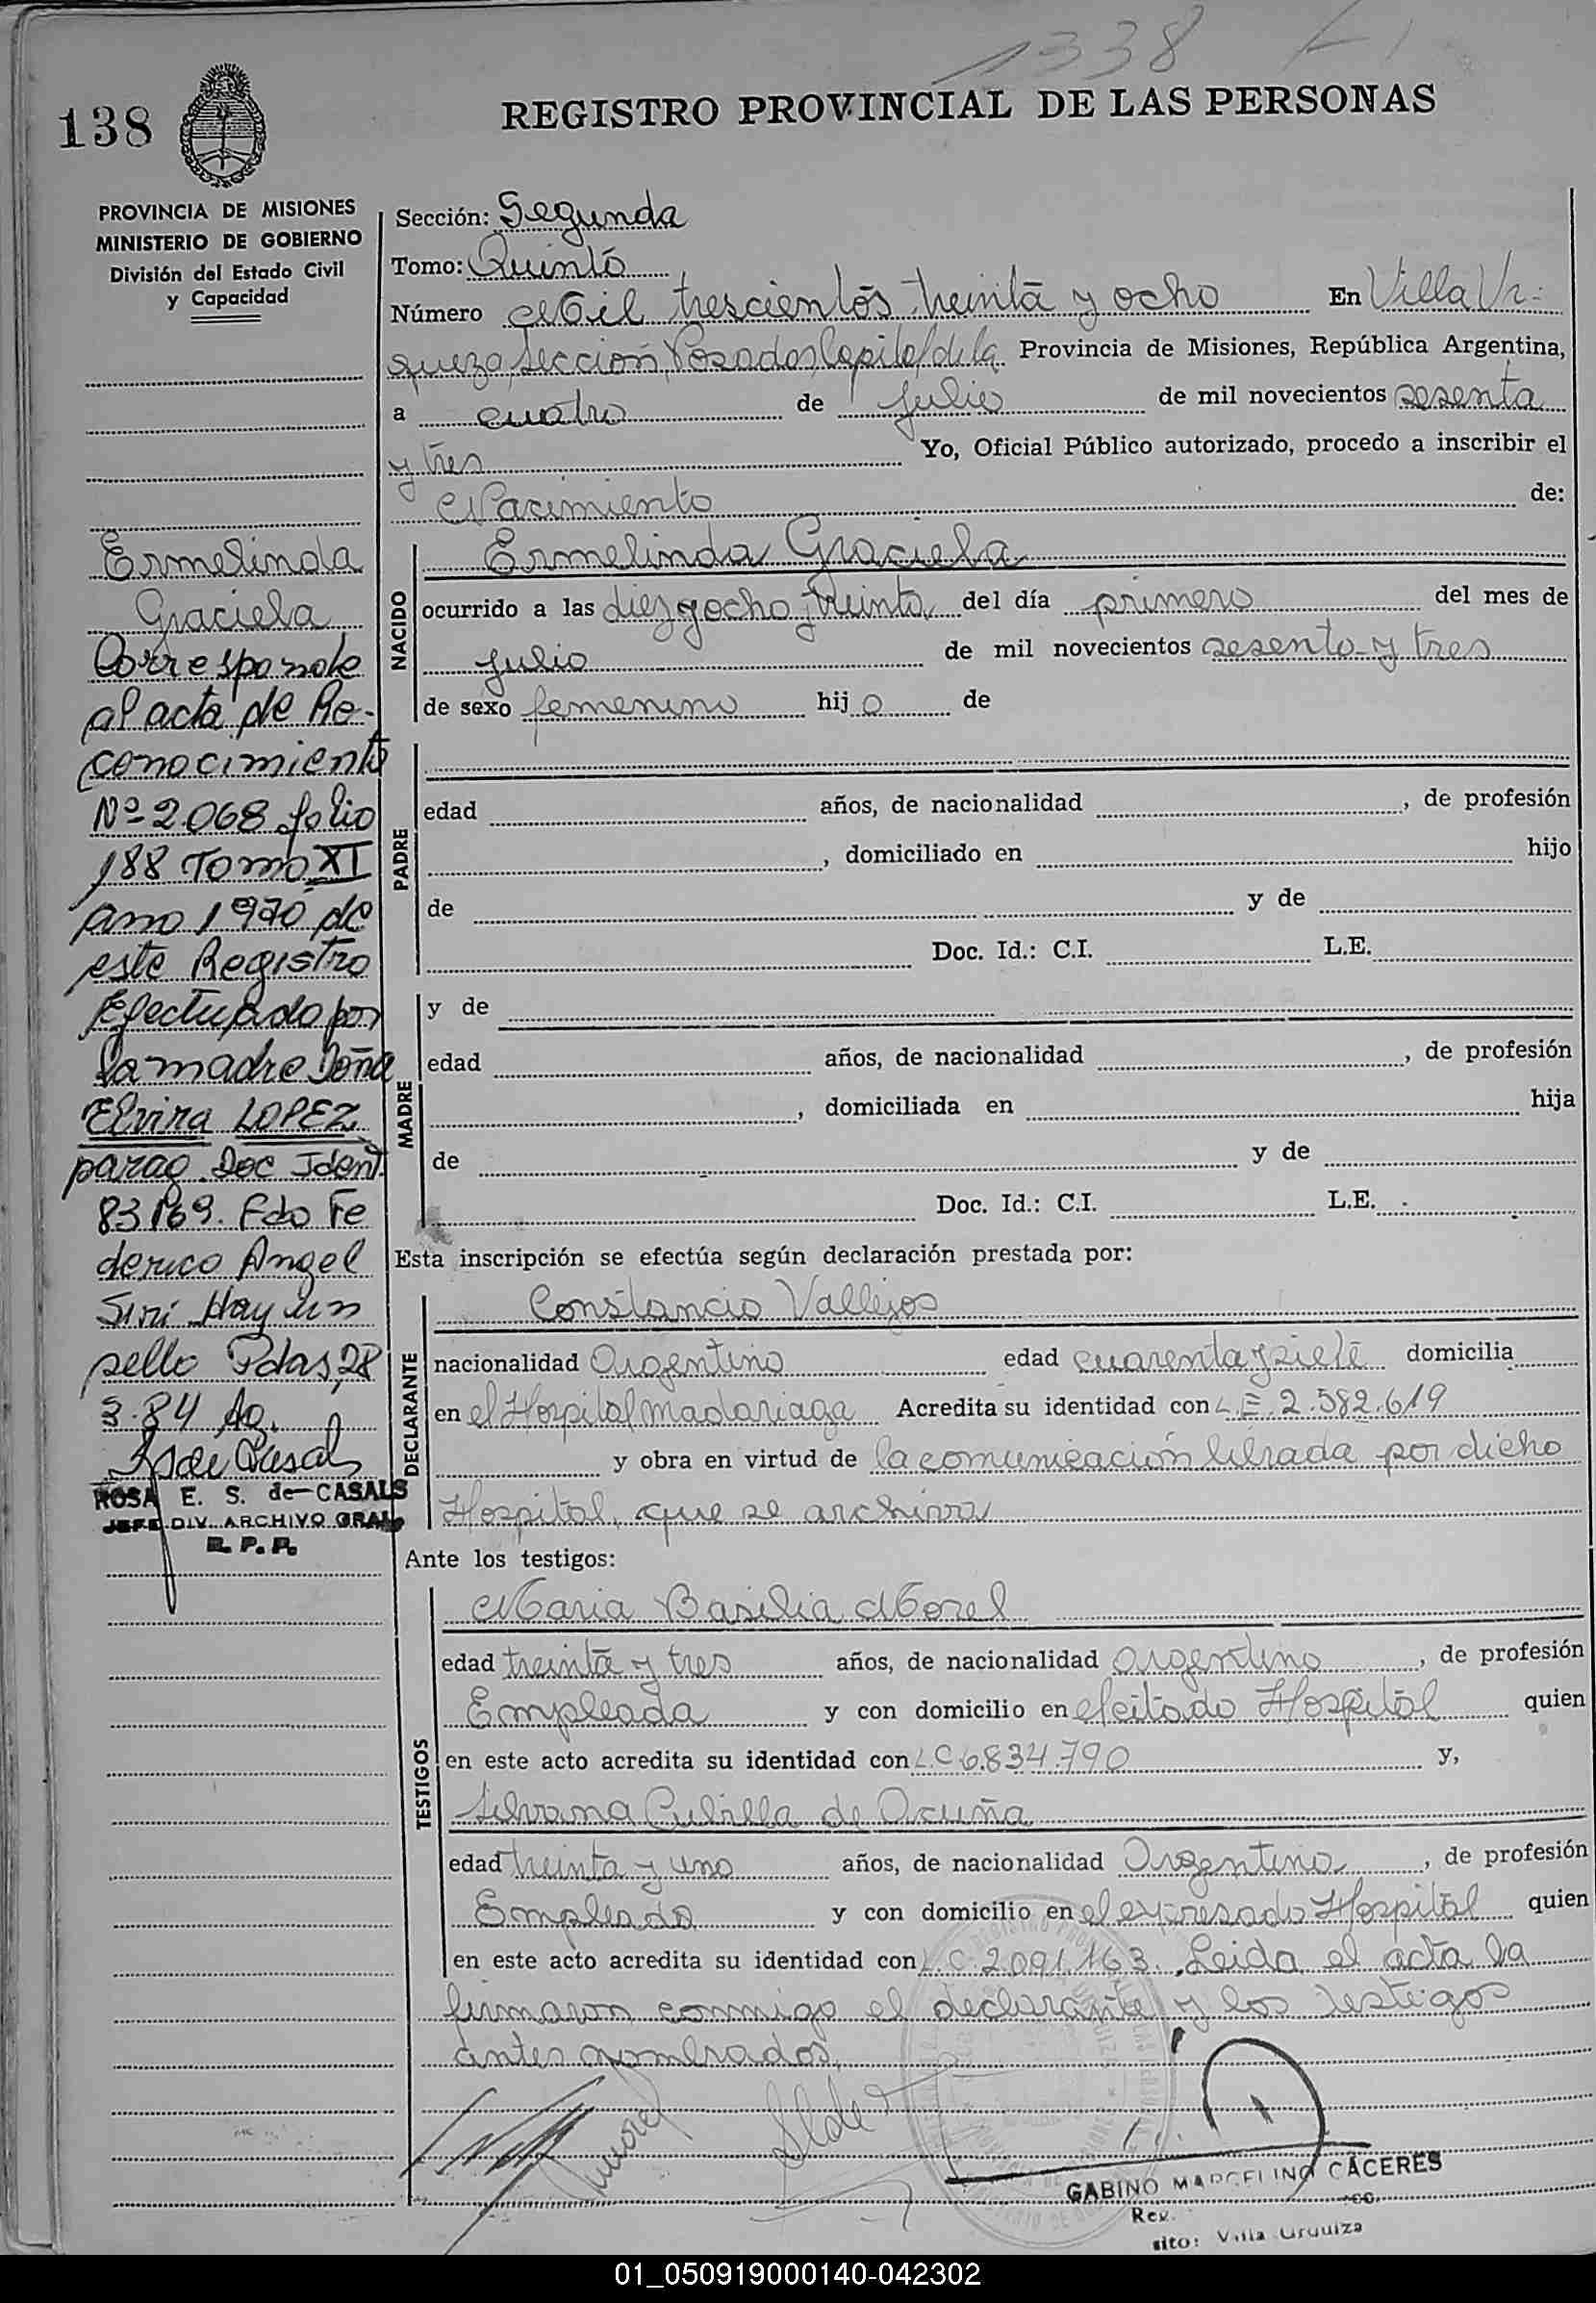 1338
138
REGISTRO PROVINCIAL DE LAS PERSONAS
PROVINCIA DE MISIONES
MINISTERIO DE GOBIERNO
División del Estado Civil
y Capacidad
Ermelinda
Graciela
Corresponde
al acta de Re-
conocimiento
Nº 2.068 folio
188 Tomo XI
año 1970 de
este Registro
Efectuado por
la madre Doña
Elvira LOPEZ
parag. Doc Ident.
83169. Fdo Fe
derico Angel
Siri Hay un
sello Pdas, 28
3.84 Ag.
ROSA E. S. de CASALS
JEFE DIV. ARCHIVO GRAL.
R. P. P.
Sección: Segunda
Tomo: Quinto
Número Mil trescientos treinta y ocho En Villa Ur-
quiza Sección, Posadas Capital de la Provincia de Misiones, República Argentina,
a cuatro de julio de mil novecientos sesenta
y tres Yo, Oficial Público autorizado, procedo a inscribir el
Nacimiento de:
NACIDO
Ermelinda Graciela
ocurrido a las diez y ocho y treinta del día primero del mes de
julio de mil novecientos sesenta y tres
de sexo femenino hij a de
PADRE
edad años, de nacionalidad , de profesión
, domiciliado en hijo
de y de
Doc. Id.: C.I. L.E.
MADRE
y de
edad años, de nacionalidad , de profesión
, domiciliada en hija
de y de
Doc. Id.: C.I. L.E.
Esta inscripción se efectúa según declaración prestada por:
DECLARANTE
Constancio Vallejos
nacionalidad Argentino edad cuarenta y siete domicilia
en el Hospital Madariaga Acredita su identidad con L.E. 2.582.619
y obra en virtud de la comunicación librada por dicho
Hospital, que se archiva
Ante los testigos:
TESTIGOS
Maria Basilia Morel
edad treinta y tres años, de nacionalidad argentina , de profesión
Empleada y con domicilio en el citado Hospital quien
en este acto acredita su identidad con L.C 6.834.790 y,
Silvana Cubilla de Acuña
edad treinta y uno años, de nacionalidad Argentina , de profesión
Empleada y con domicilio en el expresado Hospital quien
en este acto acredita su identidad con L.C. 2.091.163. Leida el acta la
firmaron conmigo el declarante y los testigos
antes nombrados.
GABINO MARCELINO CACERES
Villa Urquiza
01_050919000140-042302